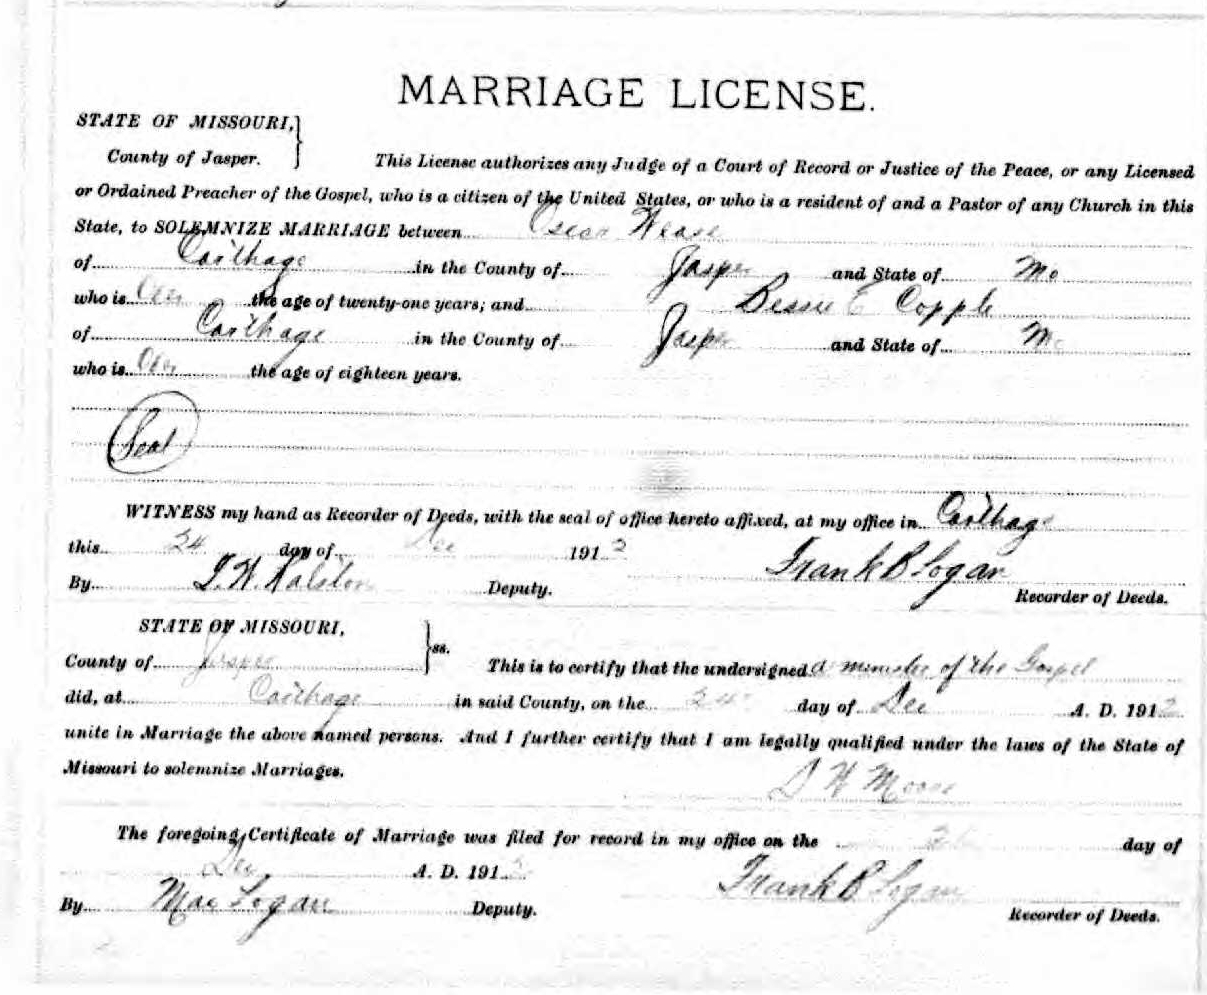 MARRIAGE LICENSE.
STATE OF MISSOURI,
County of Jasper.
This License authorizes any Judge of a Court of Record or Justice of the Peace, or any Licensed
or Ordained Preacher of the Gospel, who is a citizen of the United States, or who is a resident of and a Pastor of any Church in this
State, to SOLEMNIZE MARRIAGE between Oscar Wease
of Carthage in the County of Jasper and State of Mo
who is Over the age of twenty-one years; and Bessie E Copple
of Carthage in the County of Jasper and State of Mo
who is Over the age of eighteen years.
Seal
WITNESS my hand as Recorder of Deeds, with the seal of office hereto affixed, at my office in Carthage
this 24 day of Dec 191
By Ralston Deputy. Frank B Logan
Recorder of Deeds.
STATE OF MISSOURI,
County of Jasper ss. This is to certify that the undersigned a minister of the Gospel
did, at Carthage in said County, on the 24 day of Dec A. D. 191
unite in Marriage the above named persons. And I further certify that I am legally qualified under the laws of the State of
Missouri to solemnize Marriages.
W Moore
The foregoing Certificate of Marriage was filed for record in my office on the day of
Dec A. D. 191 Frank B Logan
By Mae Logan Deputy.
Recorder of Deeds.